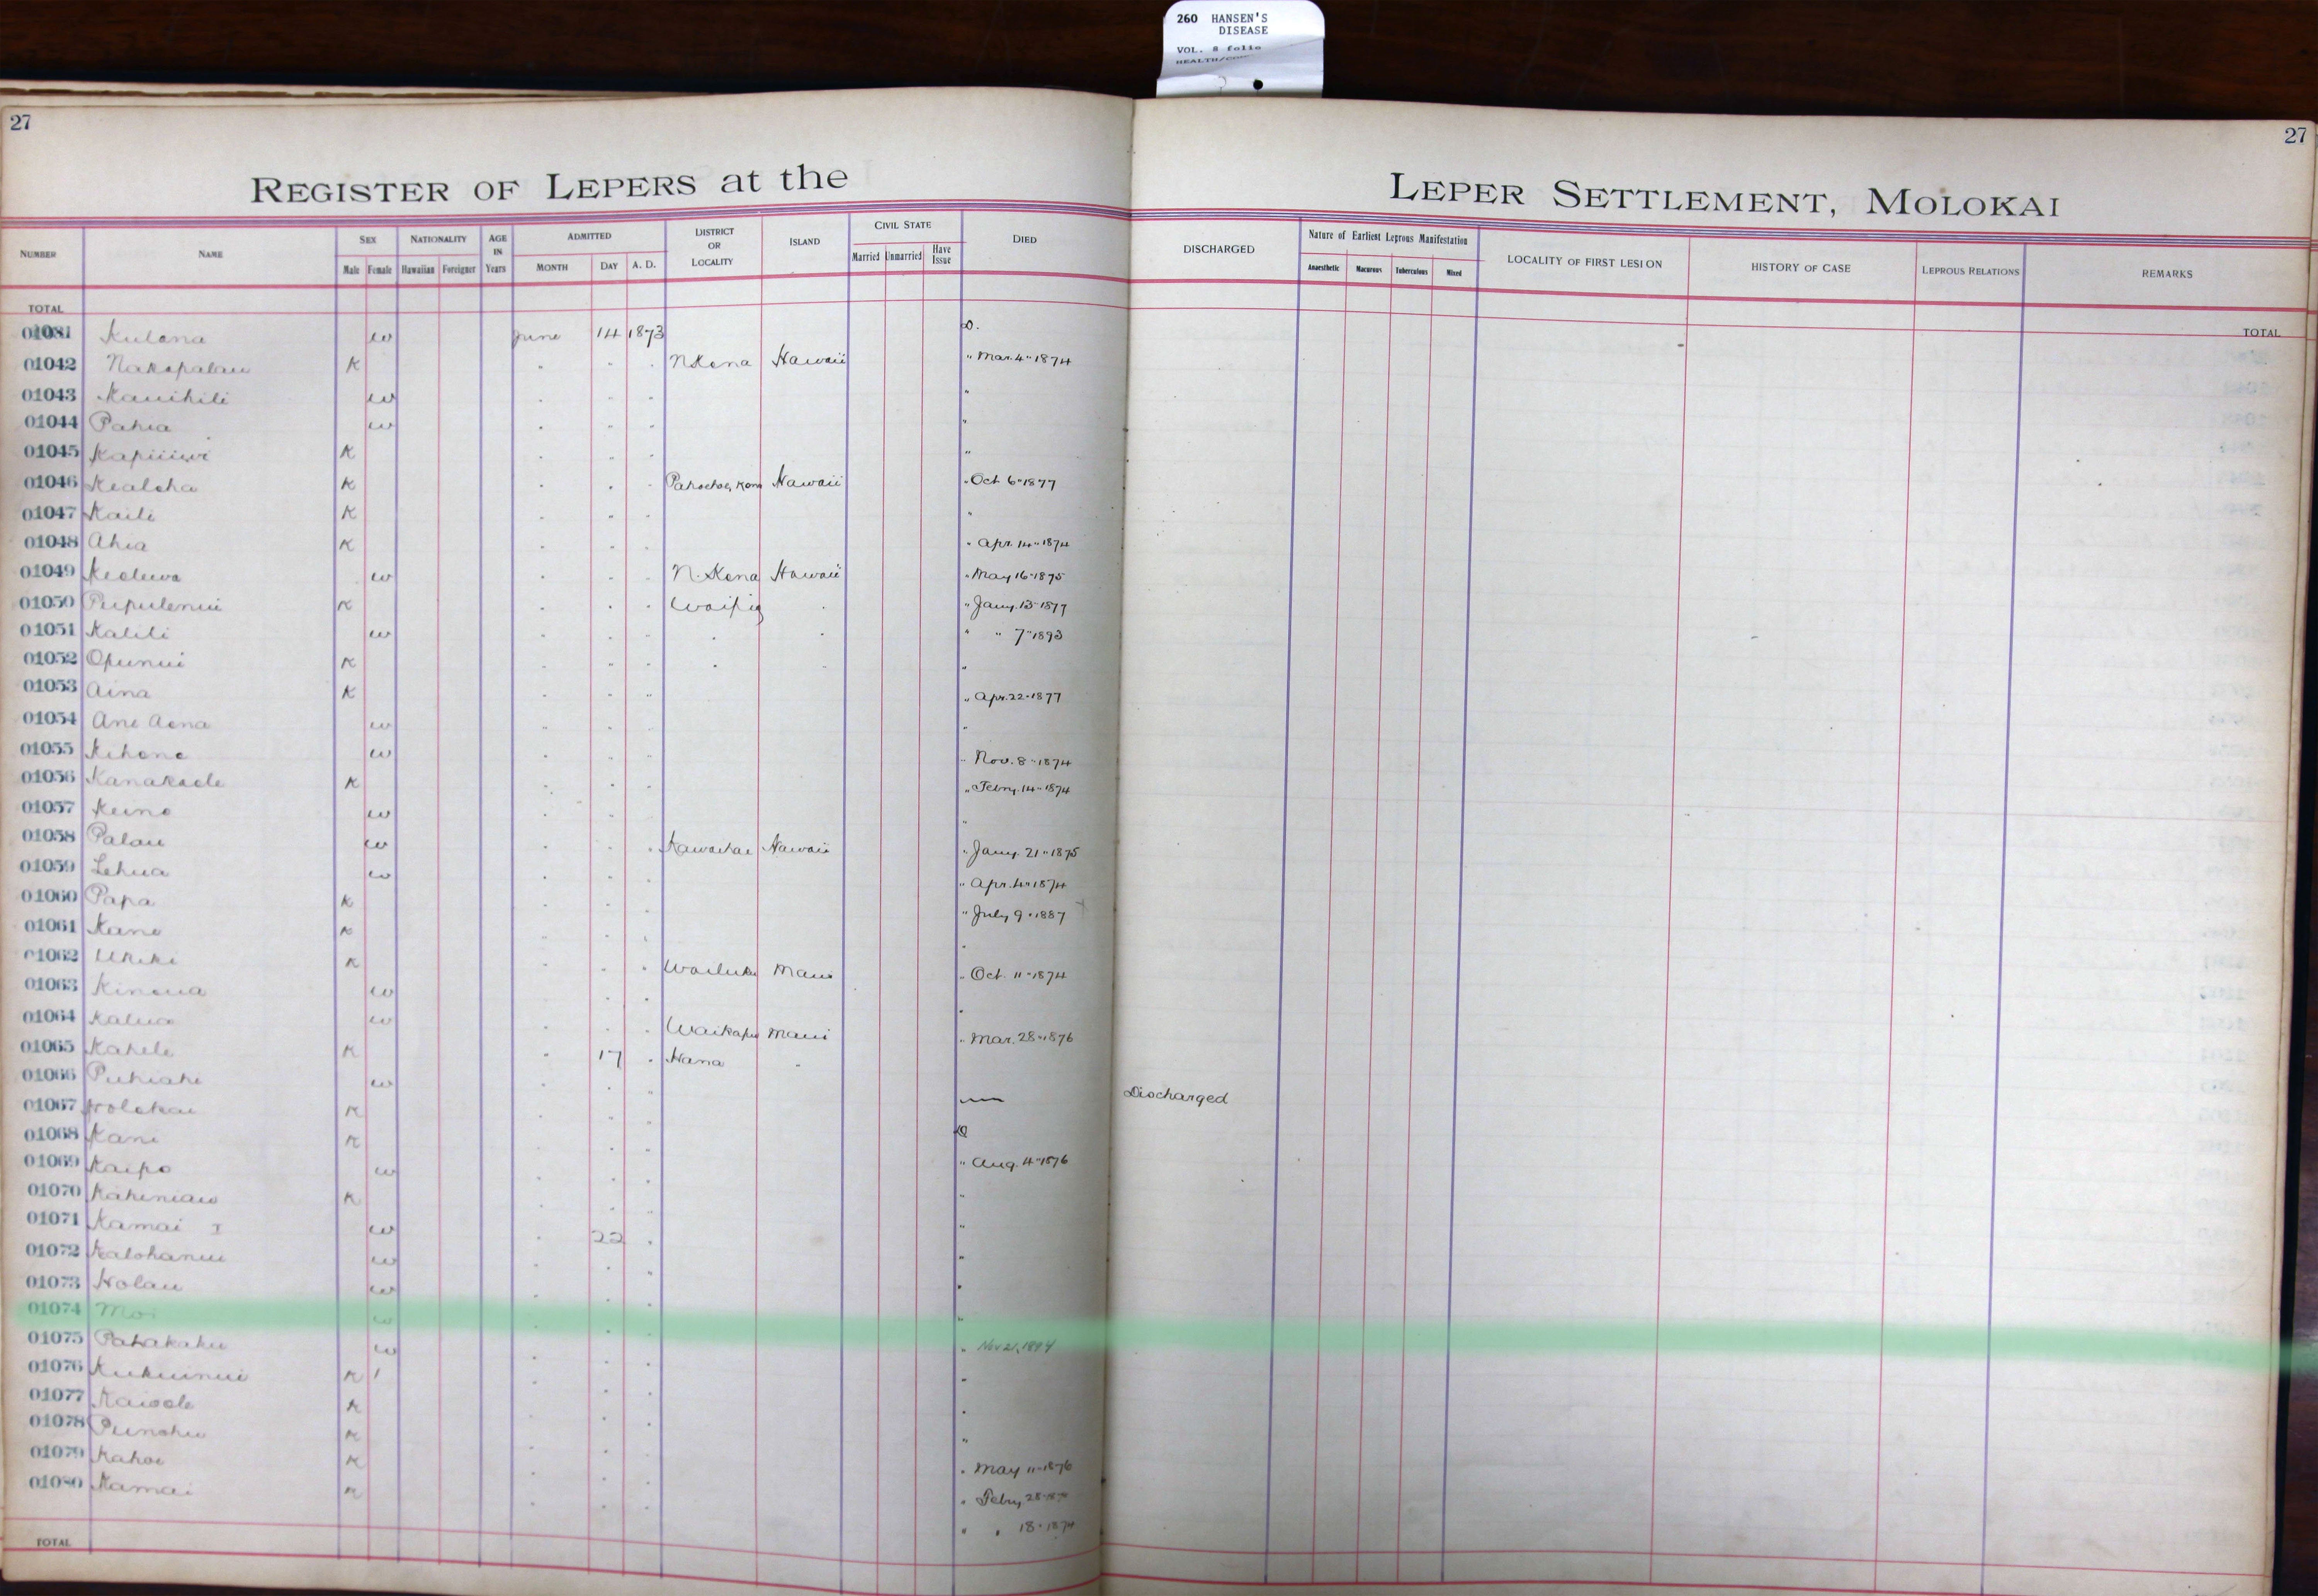 260 HANSEN'S
DISEASE
VOL. 8 folio
27
27
REGISTER OF LEPERS at the LEPER SETTLEMENT, MOLOKAI
NUMBER NAME SEX Male Female NATIONALITY Hawaiian Foreigner AGE IN Years ADMITTED MONTH DAY A. D. DISTRICT OR LOCALITY ISLAND CIVIL STATE Married Unmarried Have Issue DIED DISCHARGED Nature of Earliest Leprous Manifestation Anaesthetic Macurous Tuberculous Mixed LOCALITY OF FIRST LESION HISTORY OF CASE LEPROUS RELATIONS REMARKS
TOTAL TOTAL
Kulana w June 14 1873 D.
01042 Nakopalau K " " " N Kona Hawaii " Mar. 4" 1874
01043 Kauihili w " " " "
01044 Pahia w " " " "
01045 K " " " "
01046 Kealoha K " " " Hawaii " Oct 6" 1877
01047 Kaili K " " " "
01048 Ahia K " " " " Apr. 14" 1874
01049 Keoluwa w " " " N. Kona Hawaii " May 16" 1875
01050 Pupulenui K " " " Waipio " " Jany. 13" 1877
01051 Kalili w " " " " " " " 7" 1893
01052 Opunui K " " " " " "
01053 Aina K " " " " Apr. 22" 1877
01054 Ane Aona w " " " "
01055 Kihene w " " " " Nov. 8" 1874
01056 Kanakaole K " " " " Febry. 14" 1874
01057 Keino w " " " "
01058 Palau w " " " Kawaihae Hawaii " Jany. 21" 1875
01059 Lehua w " " " " Apr. 4" 1874
01060 Papa K " " " " July 9" 1887
01061 Kane K " " " "
01062 Ukeke K " " " Wailuku Maui " Oct. 11" 1874
01063 Kinoua w " " " "
01064 Kalua w " " " Waikapu Maui " Mar. 28" 1876
01065 Kahele K " 17 " Hana "
01066 Puhiahi w " " " Discharged
01067 Holokai K " " " D
01068 Kani K " " " " Aug. 4" 1876
01069 Kaipo w " " " "
01070 Kaheniau K " " " "
01071 Kamai I w " 22 " "
01072 Kalohanui w " " " "
01073 Holau w " " " "
01074 Moi w " " " " Nov 21, 1894
01075 Pahakahu w " " " "
01076 Kukuinui K " " " "
01077 Kaiaole K " " " "
01078 Punohu K " " " " May 11" 1876
01079 Kahoe K " " " " Febry 28"
01080 Kamai K " " " " " 18" 1874
TOTAL